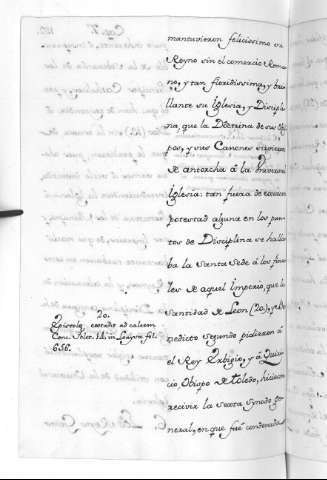 mantuvieron felicissimo su
Reyno sin el comercio Roma-
no, y tan floridissima, y bri-
llante su Iglesia, y Discipli-
na, que la Doctrina de sus Obis-
pos, y sus Canones sirvieron
de antorcha á la
Iglesia: tan fuera de
potestad alguna en los pun-
tos de Disciplina se halla-
ba la Santa Sede á los fines
de aquel Imperio, que la
Santidad de Leon (20), y Be-
nedicto segundo pidieron á
el Rey Erbigio, y á Quiri-
cio, Obispo de Toledo, hiciesen
recivir la sexta Synodo Ge-
neral, en que fué condenado
20.
Epistola ad calcem
Conc. Tolet. fol.
656.